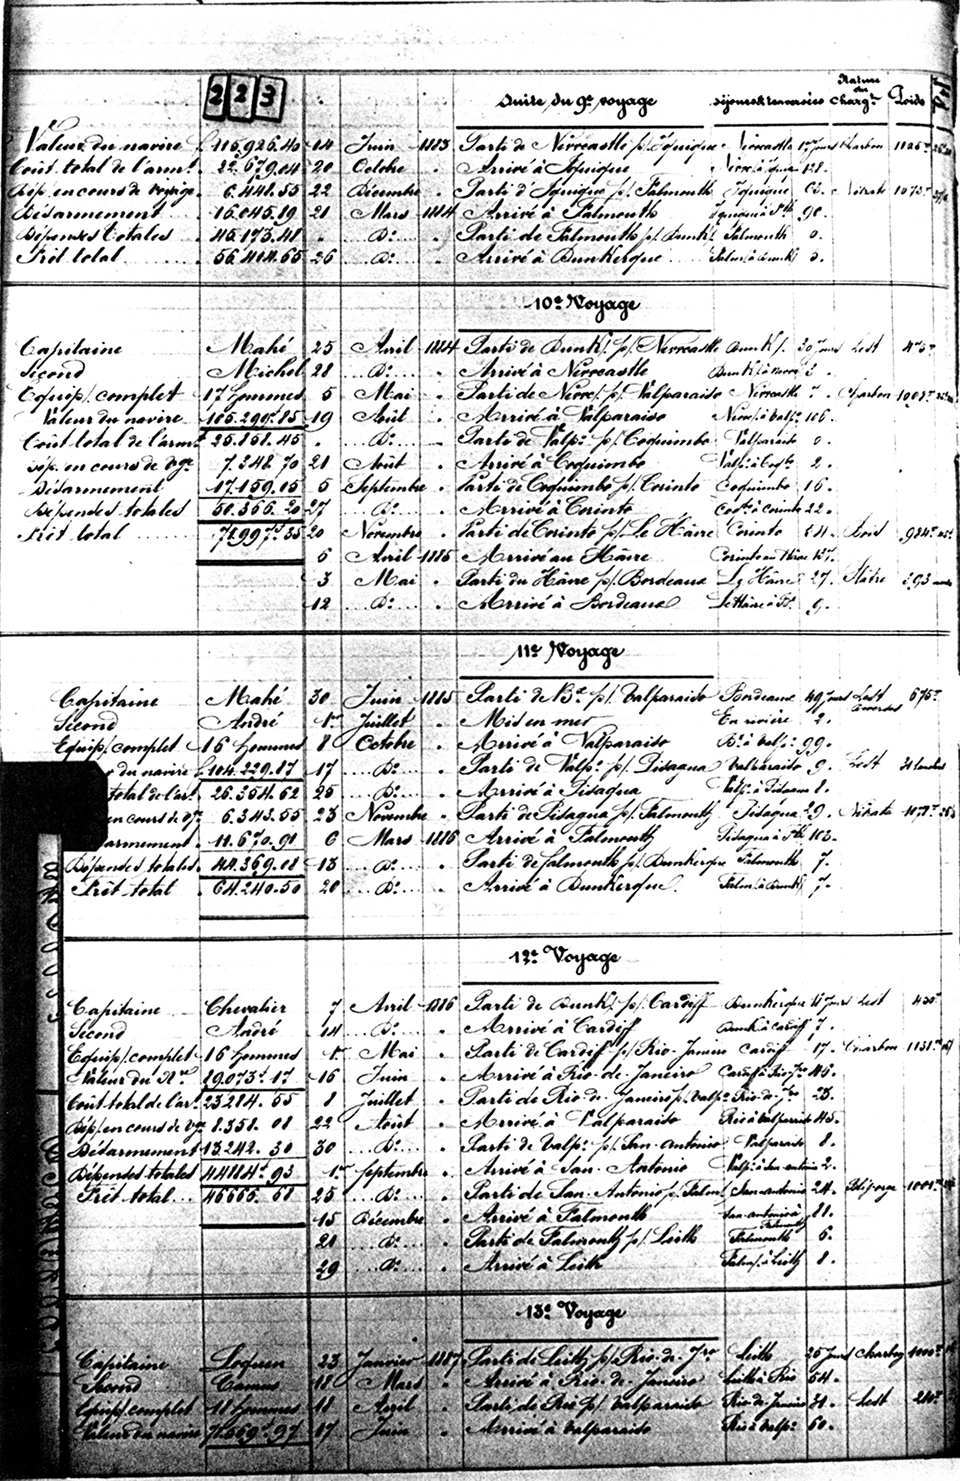 223
Suite du 9e voyage Séjours & traversées Nature du Charg.t Poids
Valeur du navire 115,926.40 14 Juin 1883 Parti de Newcastle p/. Iquique Newcastle jours Charbon
Coût total de l'arm.t 22.679.04 20 Octobre Arrivé à Iquique 128.
Dép. en cours de voyage 6.448.55 22 Décembre Parti d'Iquique p/. Falmouth Iquique 63. Nitrate
Désarmement 16.045.89 21 Mars 1884 Arrivé à Falmouth 90.
Dépenses totales 45.173.48 D.o Parti de Falmouth p/. Dunk/. Falmouth 0.
Frêt total 56.404.65 26 D.o Arrivé à Dunkerque 5.
10e Voyage
Capitaine Mahé 25 Avril 1884 Parti de Dunk/. p/. Newcastle Dunk/. 30 jours Lest
Second Michel 28 D.o Arrivé à Newcastle 3.
Equip/. complet 17 hommes 5 Mai Parti de Newc/. p/. Valparaiso Newcastle 7. Charbon
Valeur du navire 105.299.85 19 Août Arrivé à Valparaiso 106.
Coût total de l'arm.t 25.858.45 D.o Parti de Valp.o p/. Coquimbo Valparaiso 0.
Dép. en cours de vge 7.348.70 21 Août Arrivé à Coquimbo Valp.o à Coqbo 2.
Désarmement 17.159.05 5 Septembre Parti de Coquimbo p/. Corinto Coquimbo 16.
Dépenses totales 50.366.20 27 D.o Arrivé à Corinto Coqbo à Corinto 22.
Frêt total 71.997.35 20 Novembre Parti de Corinto p/. Le Hâvre Corinto 54. Bois
6 Avril 1885 Arrivé au Hâvre Corinto au Hâvre 137.
3 Mai Parti du Hâvre p/. Bordeaux Le Hâvre 27.
12 D.o Arrivé à Bordeaux Le Hâvre à Bx 9.
11e Voyage
Capitaine Mahé 30 Juin 1885 Parti de Bx p/. Valparaiso Bordeaux 49 jours Lest 675
Second André 1er Juillet Mis en mer En rivière 2.
Equip/. complet 16 hommes 8 Octobre Arrivé à Valparaiso Bx à Valp.o 99.
du navire 104.229.87 17 D.o Parti de Valp.o p/. Pisagua Valparaiso 9. Lest
total de l'arm. 26.354.62 25 D.o Arrivé à Pisagua Valp.o à Pisagua 8.
en cours de vge 6.343.55 23 Novembre Parti de Pisagua p/. Falmouth Pisagua 29. Nitrate
armement 11.670.91 6 Mars 1886 Arrivé à Falmouth Pisagua à Fth 103.
Dépenses totales 44.369.08 13 D.o Parti de Falmouth p/. Dunkerque Falmouth 7.
Frêt total 64.240.50 20 D.o Arrivé à Dunkerque Falm/. à Dunk/. 7.
12e Voyage
Capitaine Chevalier 7 Avril 1886 Parti de Dunk/. p/. Cardiff Dunkerque 18 jours Lest 430
Second André 14 D.o Arrivé à Cardiff Dunk à Cardiff 7.
Equip/. complet 16 hommes 1er Mai Parti de Cardiff p/. Rio-Janeiro Cardiff 17. Charbon 1131
Valeur du Nre 89.073.17 16 Juin Arrivé à Rio-de-Janeiro Cardiff à Rio 46.
Coût total de l'arm. 23284.55 8 Juillet Parti de Rio de Janeiro p/. Valp.o Rio-de-Jro 23.
Dép. en cours de vge 8.358.08 22 Août Arrivé à Valparaiso Rio à Valparaiso 45.
Désarmement 13.242.30 30 D.o Parti de Valp.o p/. San-Antonio Valparaiso 8.
Dépenses totales 44884.93 1er Septembre Arrivé à San-Antonio Valp.o à San-Antonio 2.
Frêt total 46665.68 25 D.o Parti de San-Antonio p/. Falm/. San-Antonio 24.
15 Décembre Arrivé à Falmouth San-Antonio à Falmouth 81.
21 D.o Parti de Falmouth p/. Leith Falmouth 6.
29 D.o Arrivé à Leith Falm/. à Leith 8.
13e Voyage
Capitaine Loquen 23 Janvier 1887 Parti de Leith p/. Rio-de-Jro Leith 25 jours Charbon
Second Camus 18 Mars Arrivé à Rio-de-Janeiro Leith à Rio 54.
Equip/. complet 18 hommes 18 Avril Parti de Rio p/. Valparaiso Rio de Janeiro 31. Lest
Valeur du navire 71.669.97 17 Juin Arrivé à Valparaiso Rio à Valp.o 60.